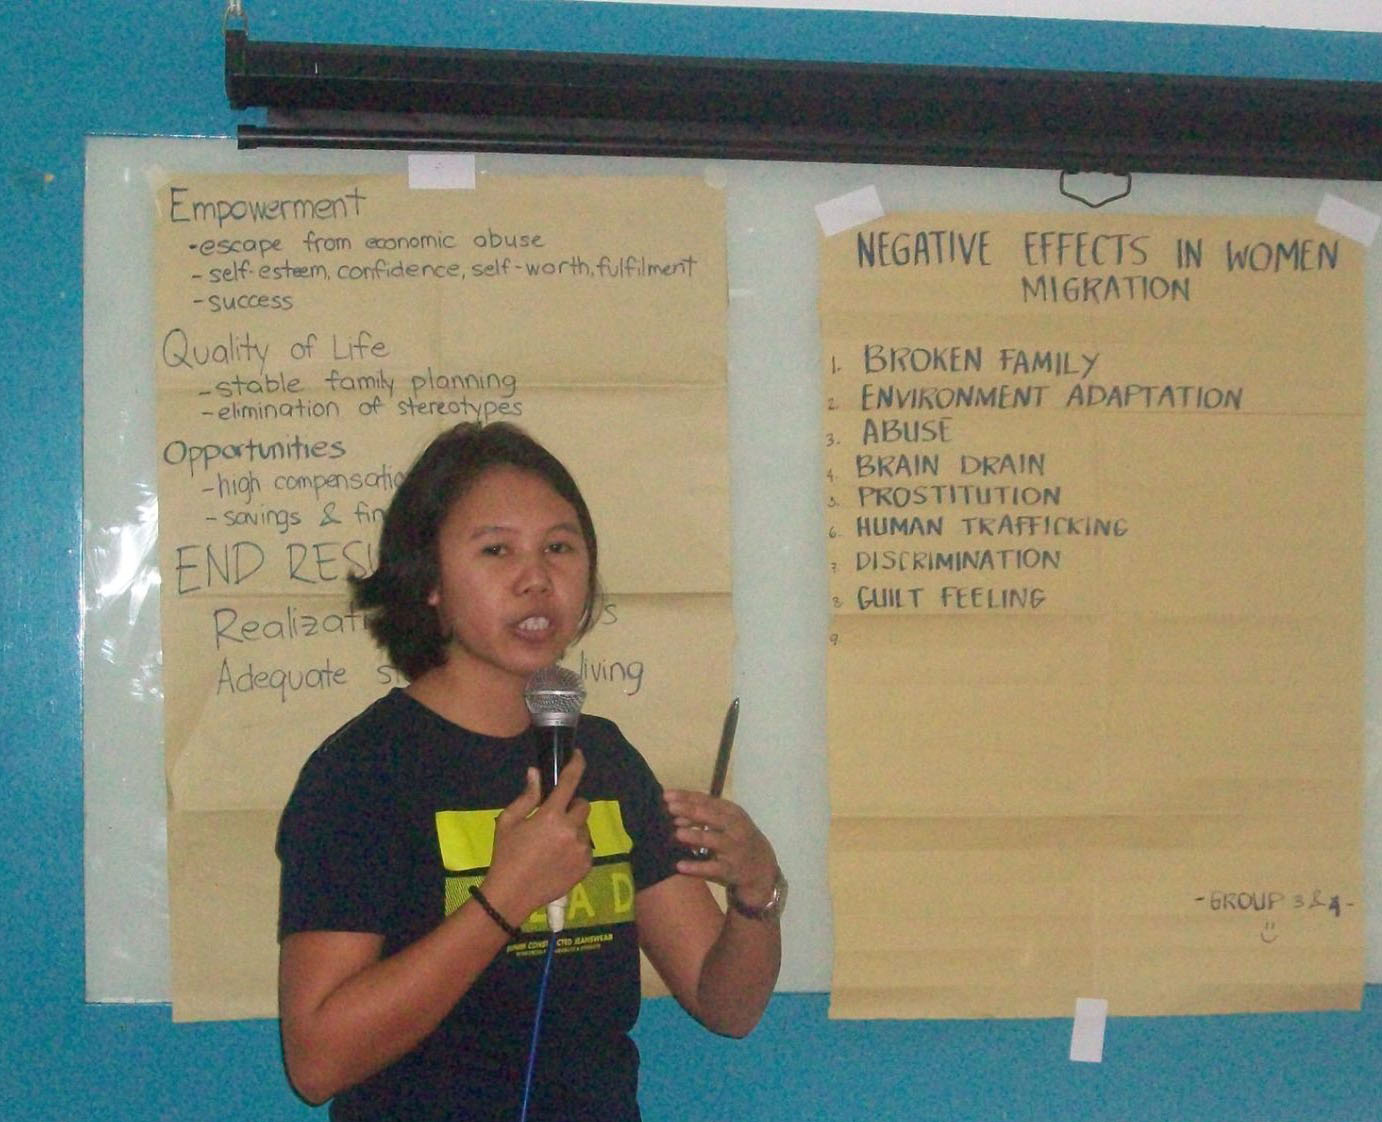 Empowerment
-escape from economic abuse
-self-esteem, confidence, self-worth, fulfilment
-success
Quality of Life
-stable family planning
-elimination of stereotypes
Opportunities
-high
-savings &
END
Adequate living
NEGATIVE EFFECTS IN WOMEN
MIGRATION
1. BROKEN FAMILY
2. ENVIRONMENT ADAPTATION
3. ABUSE
4. BRAIN DRAIN
5. PROSTITUTION
6. HUMAN TRAFFICKING
7. DISCRIMINATION
8. GUILT FEELING
9.
-GROUP 3 & 4-
JEANSWEAR